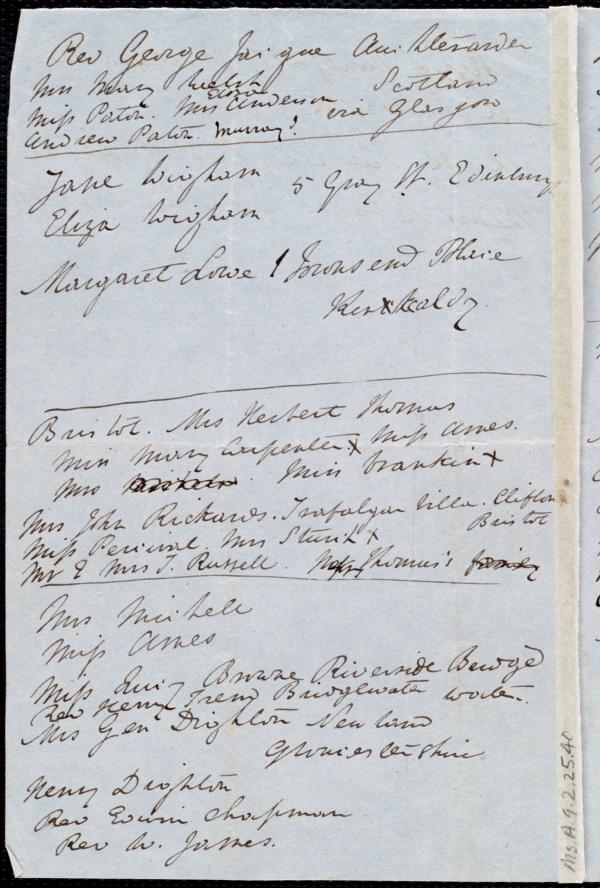 Rev George Jaique Auchterarder
Mrs Mary Welsh Scotland
Eliza
Miss Paton. Mrs Anderson via Glasgow
Andrew Paton. Murray!
Jane Wigham 5 Gray St. Edinburg
Eliza Wigham
Margaret Lowe 1 Townsend Place
Kirkcaldy
Bristol. Mrs Herbert Thomas
Miss Mary Carpenter x Miss Ames.
Mrs Miss Frankin x
Mrs John Rickards. Trafalgar Villa. Clifton
Bristol
Miss Percival. Mrs Sturch x
Mr & Mrs J. Russell. Thomas's family
Mrs Michell
Miss Ames
Miss Browne Riverside Bewd
Rev Henry Trend Bridgewater
Mrs Gen Dighton Newland
Gloucestershire
Henry Dighton
Rev Edwin Chapman
Rev W. James.
Ms.A.9.2.25.40